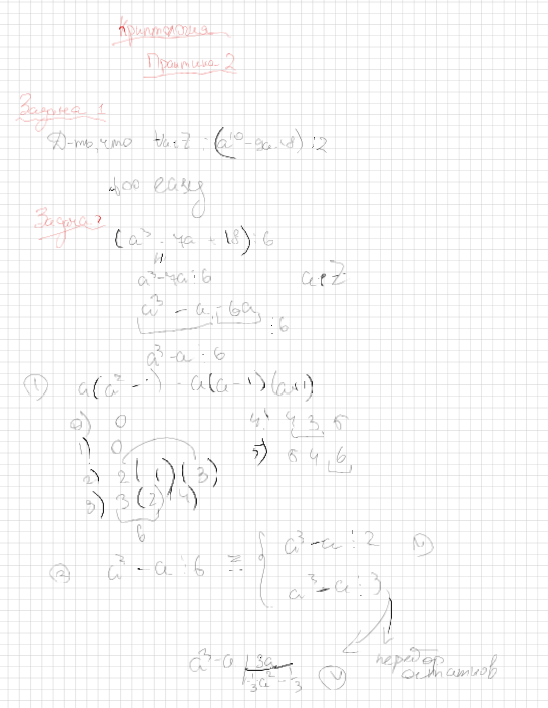 Криптология
Практика 2
Задача 1
Д-ть, что ∀a∈Z : (a¹⁰ - 9a + 8) ⋮ 2
too easy
Задача 2
(a³ - 7a + 18) ⋮ 6
a³ - 7a ⋮ 6 a ∈ Z
a³ - a - 6a ⋮ 6
a³ - a ⋮ 6
① a(a² - 1) = a(a-1)(a+1)
0) 0 4) 4 3 5
1) 0 5) 5 4 6
2) 2(1)(3)
3) 3(2)(4)
6
② a³ - a ⋮ 6 ≡ { a³ - a ⋮ 2
a³ - a ⋮ 3
перебор
остатков
a³ - a | 3a
⅓a² - ⅓